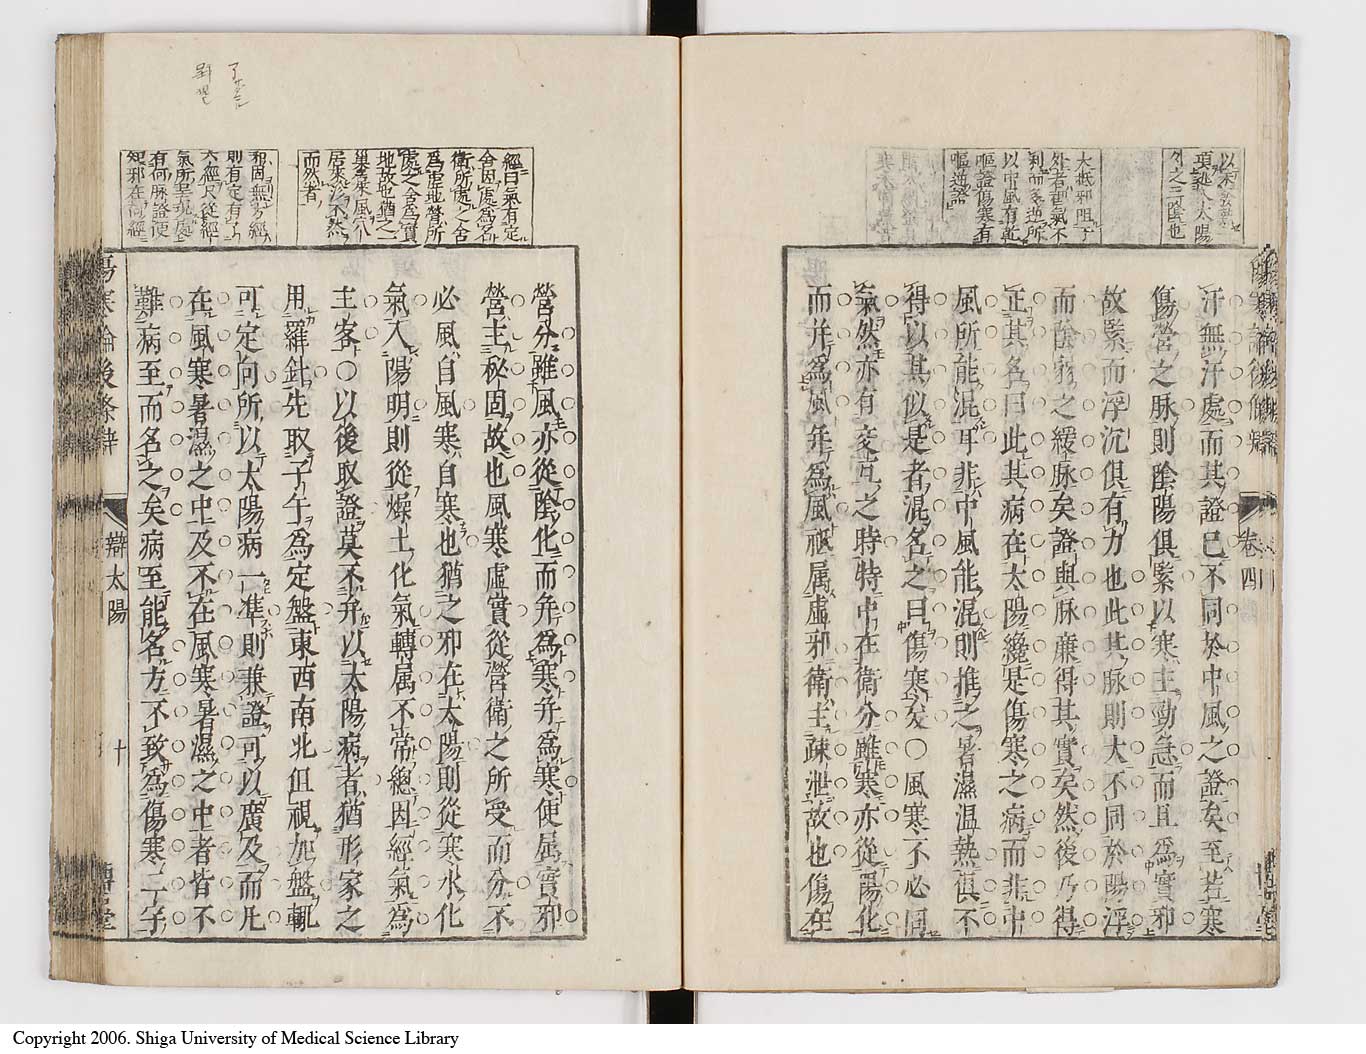 以本發熱
項延入太陽
外之三陰也
大抵邪阻于
外者裡氣不
到而多逆所
以中風有乾
嘔證傷寒有
嘔逆證
卷四
汗無汗處而其證已不同於中風之證矣至若寒
傷營之脉則陰陽俱緊以寒主勁急而且為實邪
故緊而浮沉俱有力也此其脉則大不同於陽浮
而陰弱之緩脉矣證與脉廉得其實矣然後乃得
正其名曰此其病在太陽纔是傷寒之病而非中
風所能混耳非中風能混則推之暑濕温熱俱不
得以其似是者混名之曰傷寒矣〇風寒不必同
氣然亦有交互之時特中在衛分雖寒亦從陽化
而并為風并為風祗属虛邪衛主疎泄故也傷在
經曰氣有定
舍因處為名
衛所處之舍
為虛地營所
處之舍為實
地故也猶之一
巢來風八
居來
而然者
和固無旁經
則有定有
六經只從經
氣所呈現處
有何脉證便
知邪在何經
營分雖風亦從陰化而并為寒并為寒便属實邪
營主秘固故也風寒虛實從營衛之所受而分不
必風自風寒自寒也猶之邪在太陽則從寒水化
氣入陽明則從燥土化氣轉属不常總因經氣為
主客〇以後取證莫不弁以太陽病者猶形家之
用羅針先取子午為定盤東西南北但視加盤輒
可定向所以太陽病一準則兼證可以廣及而凡
在風寒暑濕之中及不在風寒暑濕之中者皆不
難病至而名之矣病至能名方不致為傷寒二字
傷寒論後條辨
辯太陽
十